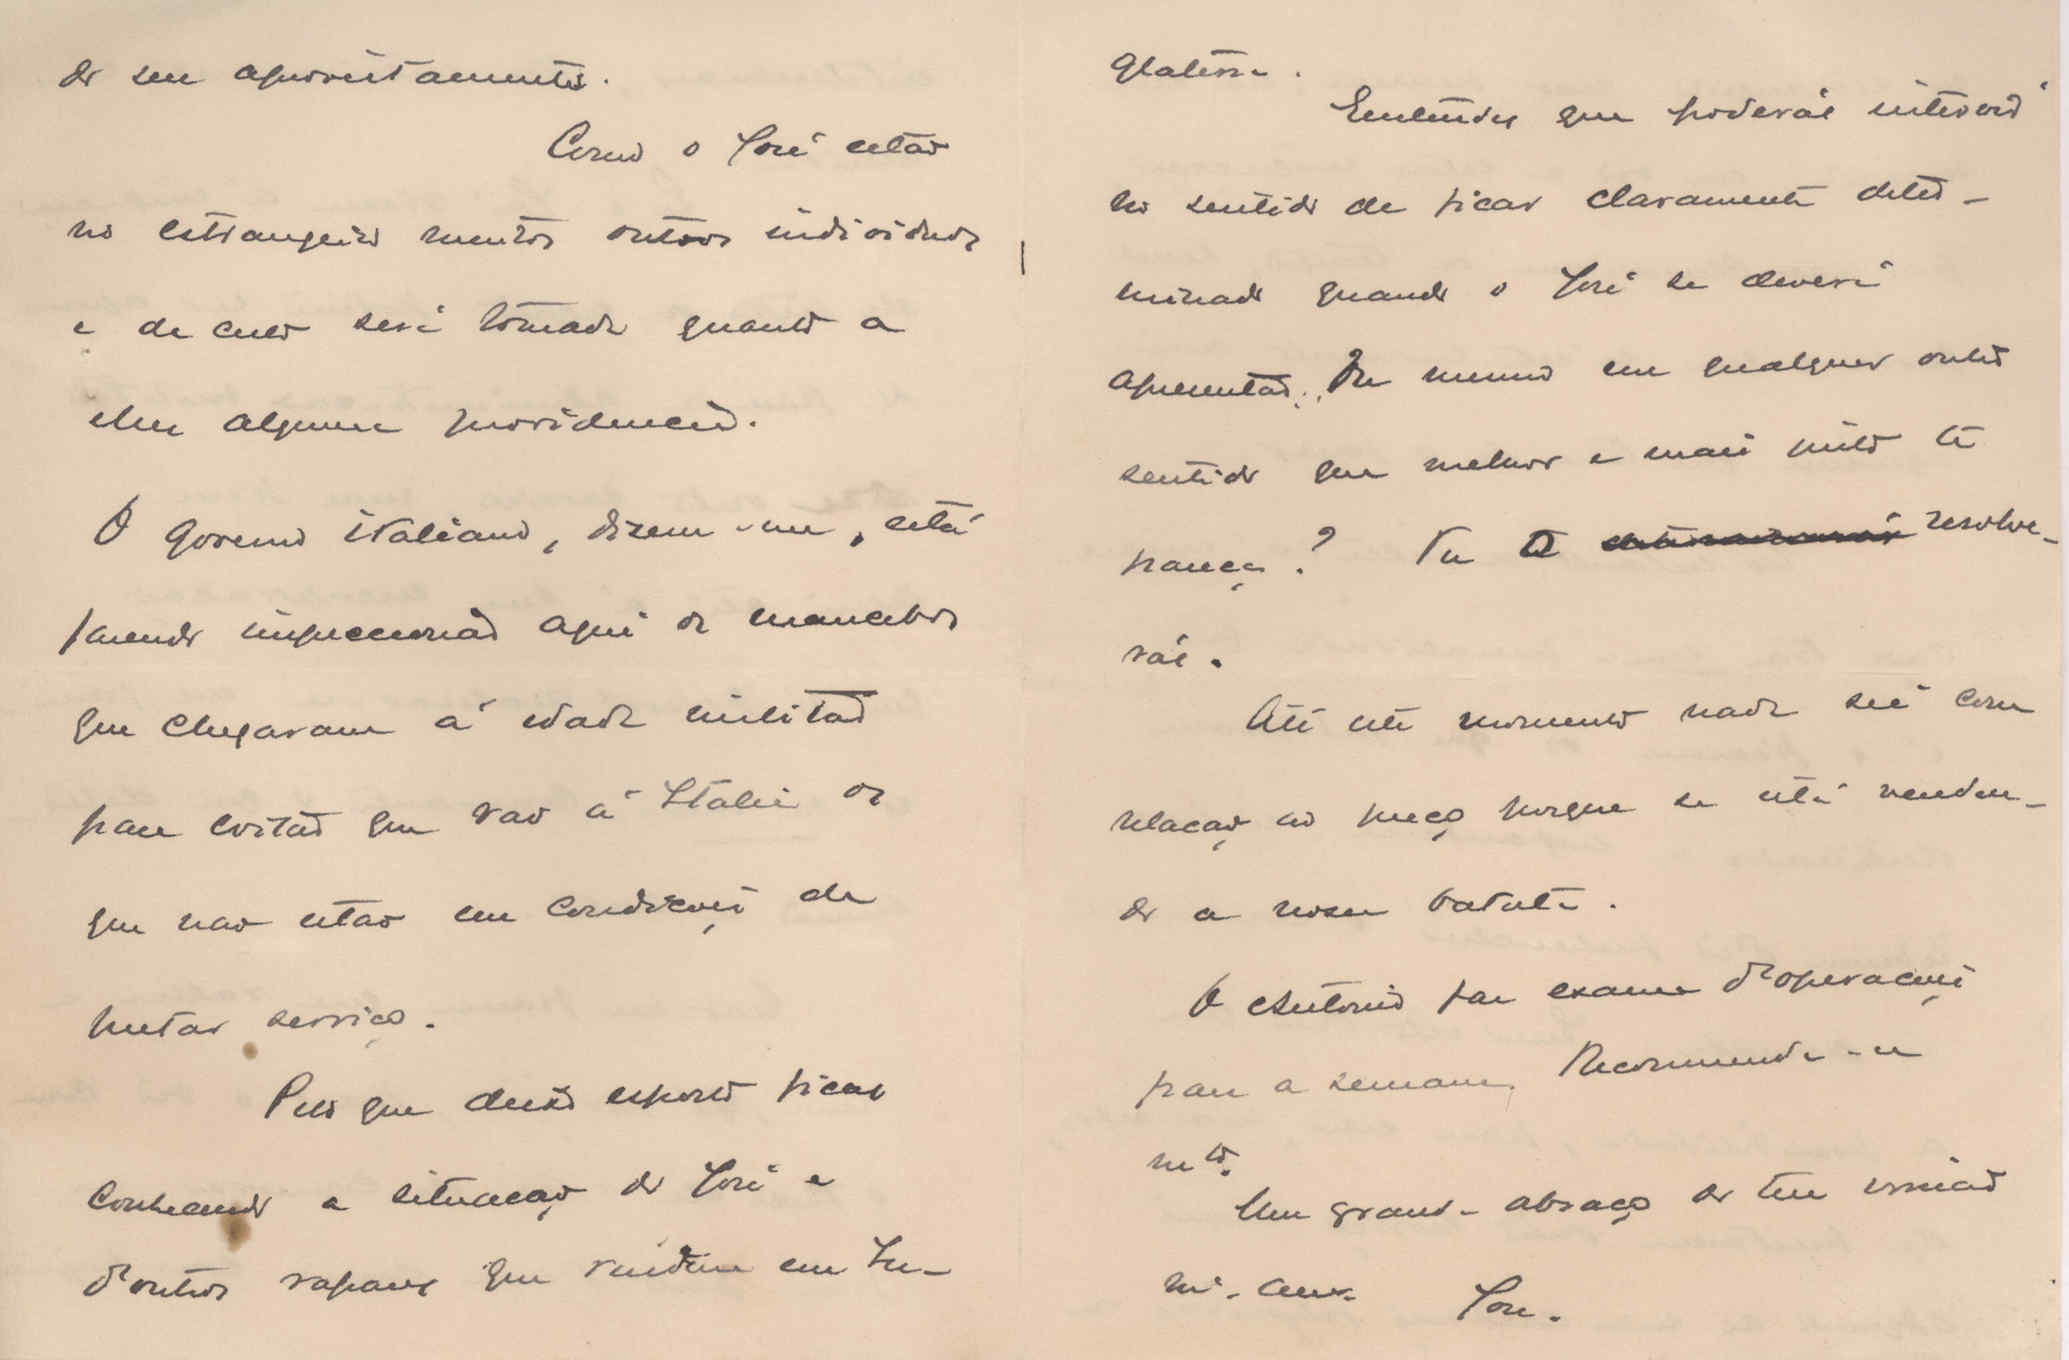 do seu aproveitamento.
Como o José estão
no estrangeiro muitos outros individuos
e de certo será tomada quanto a
eles alguma providencia.
O governo italiano, dizem-me, está
fazendo inspeccionar aqui os mancebos
que chegaram á edade militar
para evitar que vão á Italia os
que não estão em condições de
prestar serviço.
Pelo que deixo exposto ficas
conhecendo a situação do José e
d'outros rapazes que residem em In-
glaterra.
Entendes que poderás intervir
no sentido de ficar claramente deter-
minado quando o José se deverá
apresentar. Ou mesmo em qualquer outro
sentido que melhor e mais justo te
pareça? Tu o resolve-
rás.
Até este momento nada sei com
relação ao preço porque se está venden-
do a nossa batata.
O Antonio faz exame d'operações
para a semana. Recomenda-se
mto.
Um grande abraço do teu irmão
mo. amo. José.